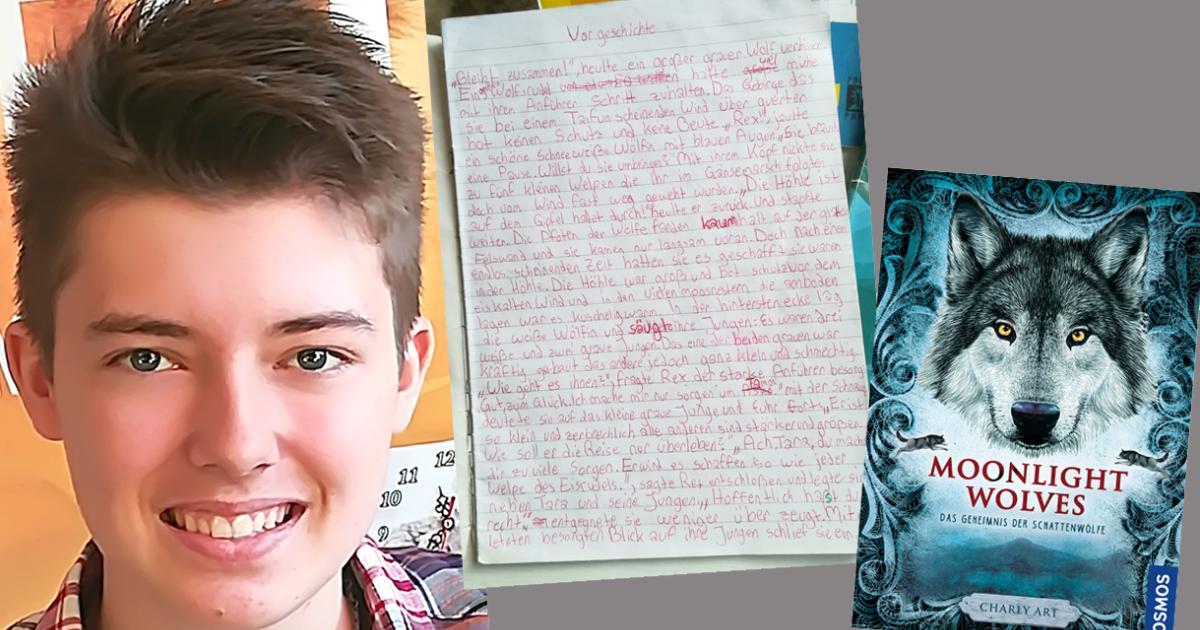 Vorgeschichte
„Bleibt zusammen!", heulte ein großer grauer Wolf
Ein Wolfsrudel hatte mühe
mit ihren Anführen Schritt zuhalten. Das Gebirge das
sie bei einem Taifun scheinenden Wind über querten
bot keinen Schutz und keine Beute. „Rex!", jaulte
ein schöne Schneeweiße Wölfin mit blauen Augen. „Sie brauch
eine Pause. Willst du sie umbringen?" Mit ihrem Kopf nickte sie
zu fünf kleinen Welpen die ihr im Gänsemarsch folgten
doch vom Wind fast weg geweht wurden. „Die Höhle ist
auf den Gipfel haltet durch!" heulte er zurück. Und stapfte
weiter. Die Pfoten der Wölfe fanden kaum halt auf den glatten
Felswand und sie kamen nur langsam voran. Doch nach einen
endlos scheinenden Zeit hatten sie es geschafft sie waren
in der Höhle. Die Höhle war groß und bot schutz vor dem
eiskalten Wind und in den vielen moosnestern die amboden
lagen war es kuschelig warm. In der hintersten ecke lag
die weiße Wölfin und säugte ihre Jungen: Es waren drei
weiße und zwei graue Jungen. Das eine der beiden grauen war
kräftig gebaut das andere jedoch ganz klein und schmechtig.
„Wie geht es ihnen?", fragte Rex der starke Anführen besorg
Gut, zum Glück. Ich mache mir nur sorgen um mit der Schnauz
deutete sie auf das kleine graue Junge und fuhr fort. „Er ist
so klein und zerbrechlich alle anderen sind stärker und größer.
Wie soll er die Reise nur überleben?" „Ach Tara, du mach
dir zu viele Sorgen. Er wird es schaffen so wie jeder
Welpe des Eisrudels.", sagte Rex entschloßen und legte sich
neben Tara und seine Jungen. „Hoffentlich hast du
recht" entgegnete sie weniger über zeugt. Mit
letzten besorgten Blick auf ihre Jungen schlief sie ein.
12
11
10
9
MOONLIGHT
WOLVES
DAS GEHEIMNIS DER SCHATTENWÖLFE
CHARLY ART